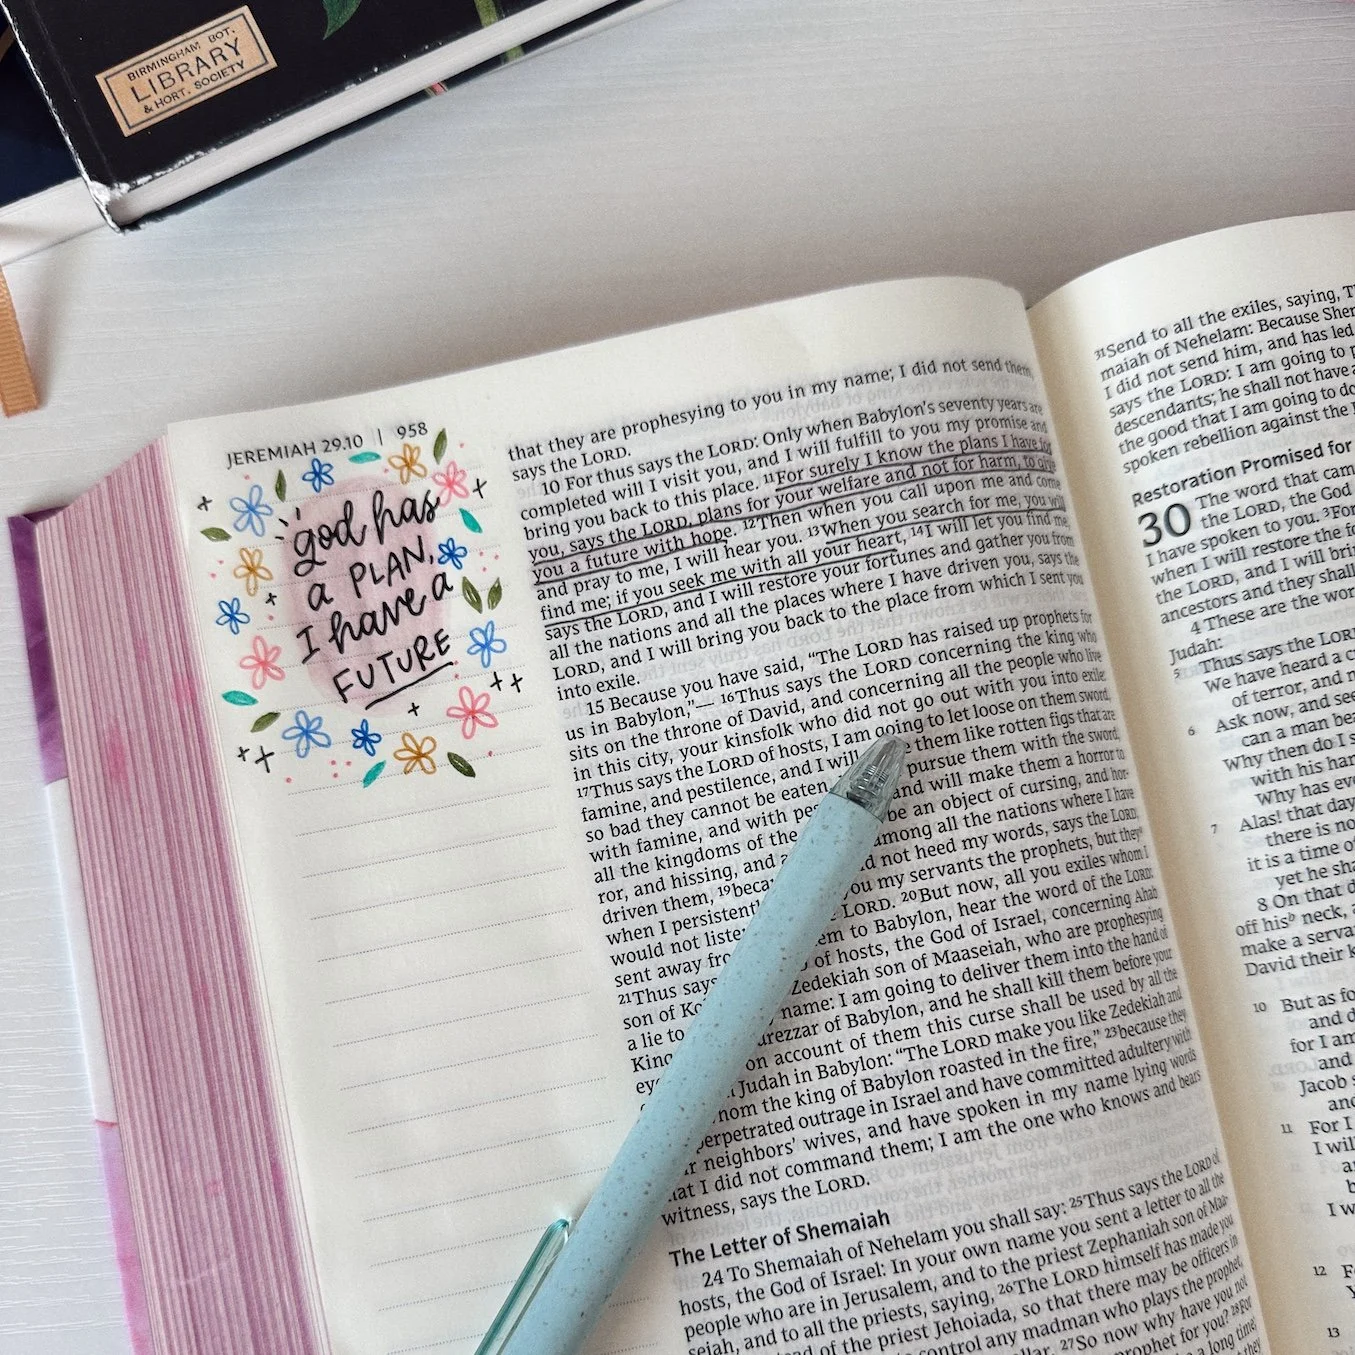 BIRMINGHAM BOT.
LIBRARY
& HORT. SOCIETY
JEREMIAH 29.10 | 958
god has
a PLAN,
I have a
FUTURE
that they are prophesying to you in my name; I did not send them,
says the LORD.
10 For thus says the LORD: Only when Babylon's seventy years are
completed will I visit you, and I will fulfill to you my promise and
bring you back to this place. 11For surely I know the plans I have for
you, says the LORD, plans for your welfare and not for harm, to give
you a future with hope. 12Then when you call upon me and come
and pray to me, I will hear you. 13When you search for me, you will
find me; if you seek me with all your heart, 14I will let you find me,
says the LORD, and I will restore your fortunes and gather you from
all the nations and all the places where I have driven you, says the
LORD, and I will bring you back to the place from which I sent you
into exile.
15 Because you have said, “The LORD has raised up prophets for
us in Babylon,”— 16Thus says the LORD concerning the king who
sits on the throne of David, and concerning all the people who live
in this city, your kinsfolk who did not go out with you into exile:
17Thus says the LORD of hosts, I am going to let loose on them sword,
famine, and pestilence, and I will them like rotten figs that are
so bad they cannot be eaten. pursue them with the sword,
with famine, and with and will make them a horror to
all the kingdoms of the be an object of cursing, and hor-
ror, and hissing, and among all the nations where I have
driven them, 19 not heed my words, says the LORD,
when I you my servants the prophets, but they
would not LORD. 20But now, all you exiles whom I
sent away to Babylon, hear the word of the LORD:
21Thus says of hosts, the God of Israel, concerning Ahab
son of Zedekiah son of Maaseiah, who are prophesying
a lie to name: I am going to deliver them into the hand of
of Babylon, and he shall kill them before your
on account of them this curse shall be used by all the
Judah in Babylon: “The LORD make you like Zedekiah and
the king of Babylon roasted in the fire,” 23because they
perpetrated outrage in Israel and have committed adultery with
neighbors' wives, and have spoken in my name lying words
that I did not command them; I am the one who knows and bears
witness, says the LORD.
The Letter of Shemaiah
24 To Shemaiah of Nehelam you shall say: 25Thus says the LORD of
hosts, the God of Israel: In your own name you sent a letter to all the
people who are in Jerusalem, and to the priest Zephaniah son of Maa-
seiah, and to all the priests, saying, 26The LORD himself has made you
of the priest Jehoiada, so that there may be officers in
control any madman who plays the prophet,
27So now why have you not
prophet for you? 28For
a long time;
31Send to all the exiles, saying,
maiah of Nehelam: Because
I did not send him, and has led
says the LORD: I am going to
descendants; he shall not have
the good that I am going to do
spoken rebellion against the
Restoration Promised for
30 The word that came
the LORD, the God
I have spoken to you. 3
when I will restore the
the LORD, and I will
ancestors and they shall
4 These are the
Judah:
5 Thus says the
We have heard a
of terror, and
6 Ask now, and see
can a man
Why then do I
with his
Why has
7 Alas! that day
there is
it is a time
yet he
8 On that
off hisb neck,
make a
David their
10 But as
and
for I am
and
Jacob
and
11 For I
I will
12
13